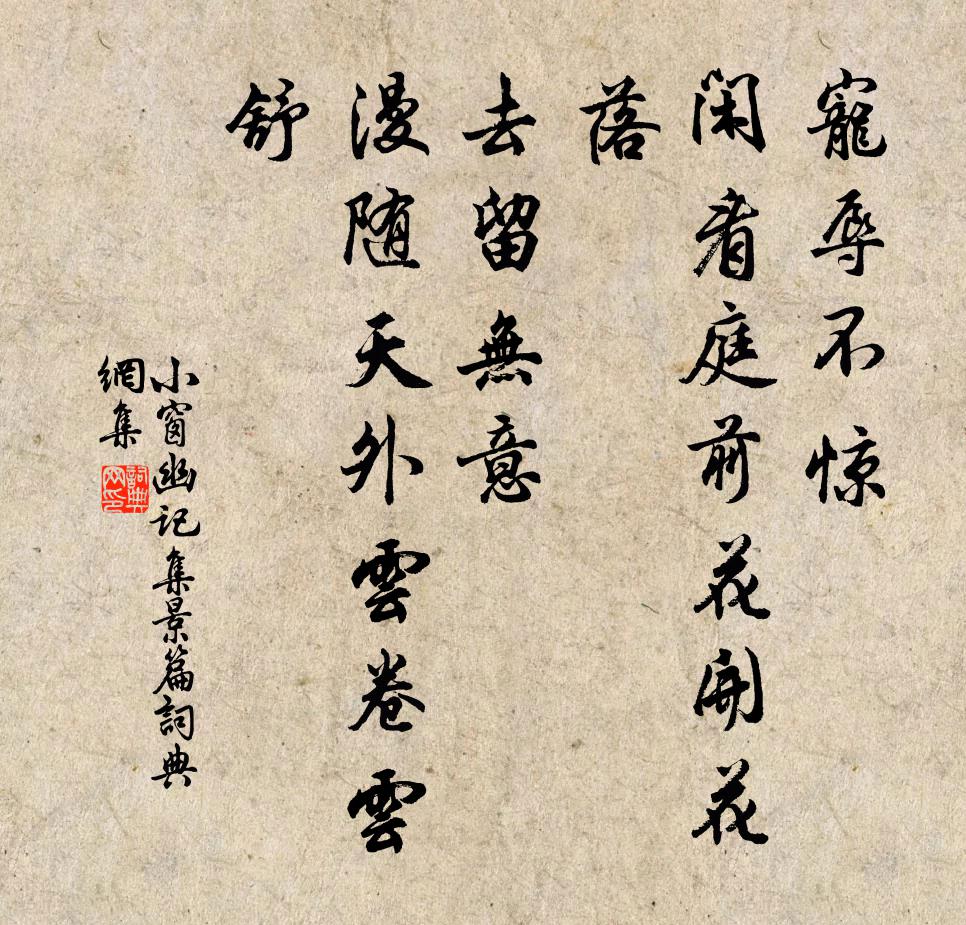 寵辱不惊
閑看庭前花開花
落
去留無意
漫随天外雲卷雲
舒
小窗幽记集景篇詞典
網集
詞典
网印